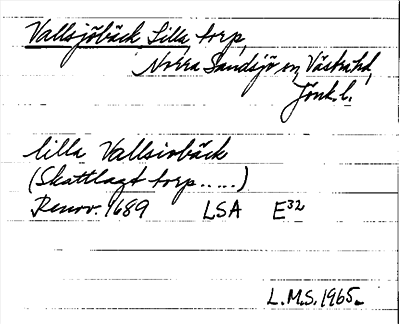 Vallsjöbäck, Lilla, torp,
Norra Sandsjö sn, Västra hd,
Jönk. l.
lilla Vallsiobäck
(Skattlagt torp.....)
Renov. 1689 LSA E32
L.M.S. 1965.